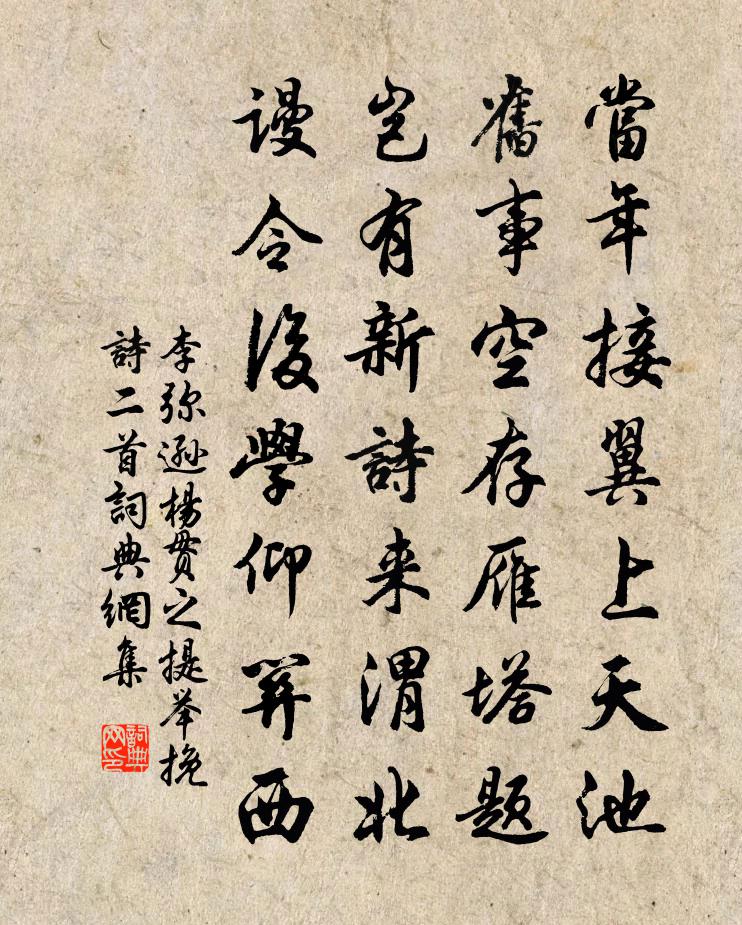 當年接翼上天池
舊事空存雁塔題
豈有新詩来渭北
謾令後學仰關西
李弥遜楊贯之提举挽
詩二首詞典網集
詞典网印